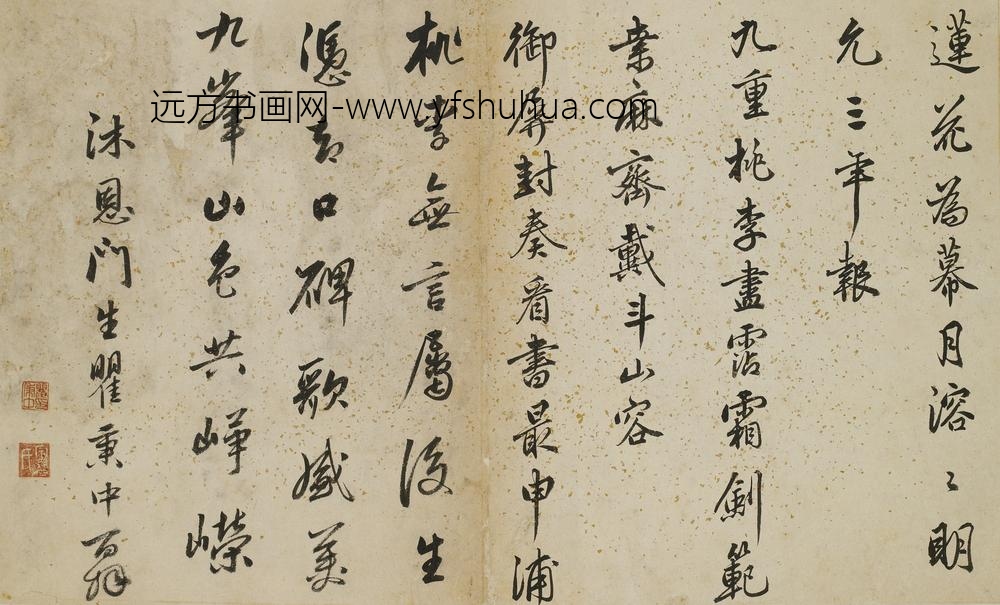 蓮花為幕月溶〻明
允三年報
九重桃李盡霑霜劍範
桑麻齊戴斗山容
御屏封奏看書最申浦
桃李無言屬後生
憑口碑歌盛美
九峯山色共崢嶸
沐恩門生瞿秉中百拜
远方书画网-www.yfshuhua.com